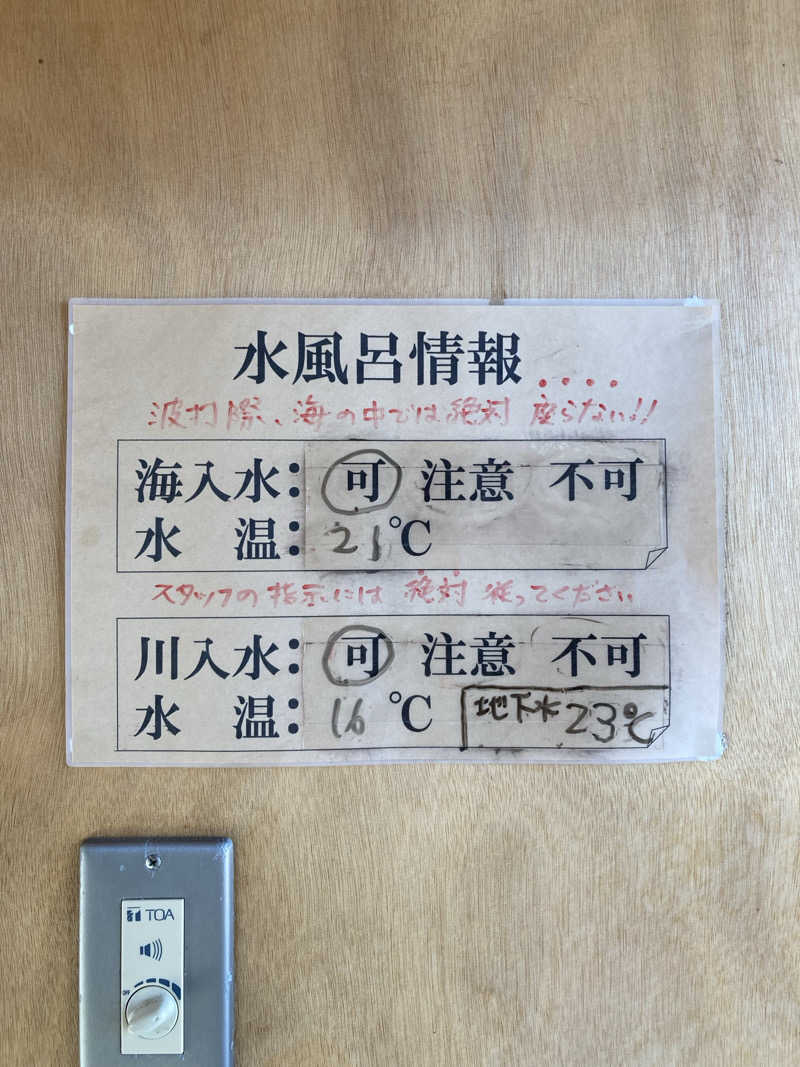 水風呂情報
波打際、海の中では絶対 座らない!!
海入水: 可 注意 不可
水 温: 21℃
スタッフの指示には 絶対 従ってください
川入水: 可 注意 不可
水 温: 16℃ 地下水 23℃
TOA
OFF